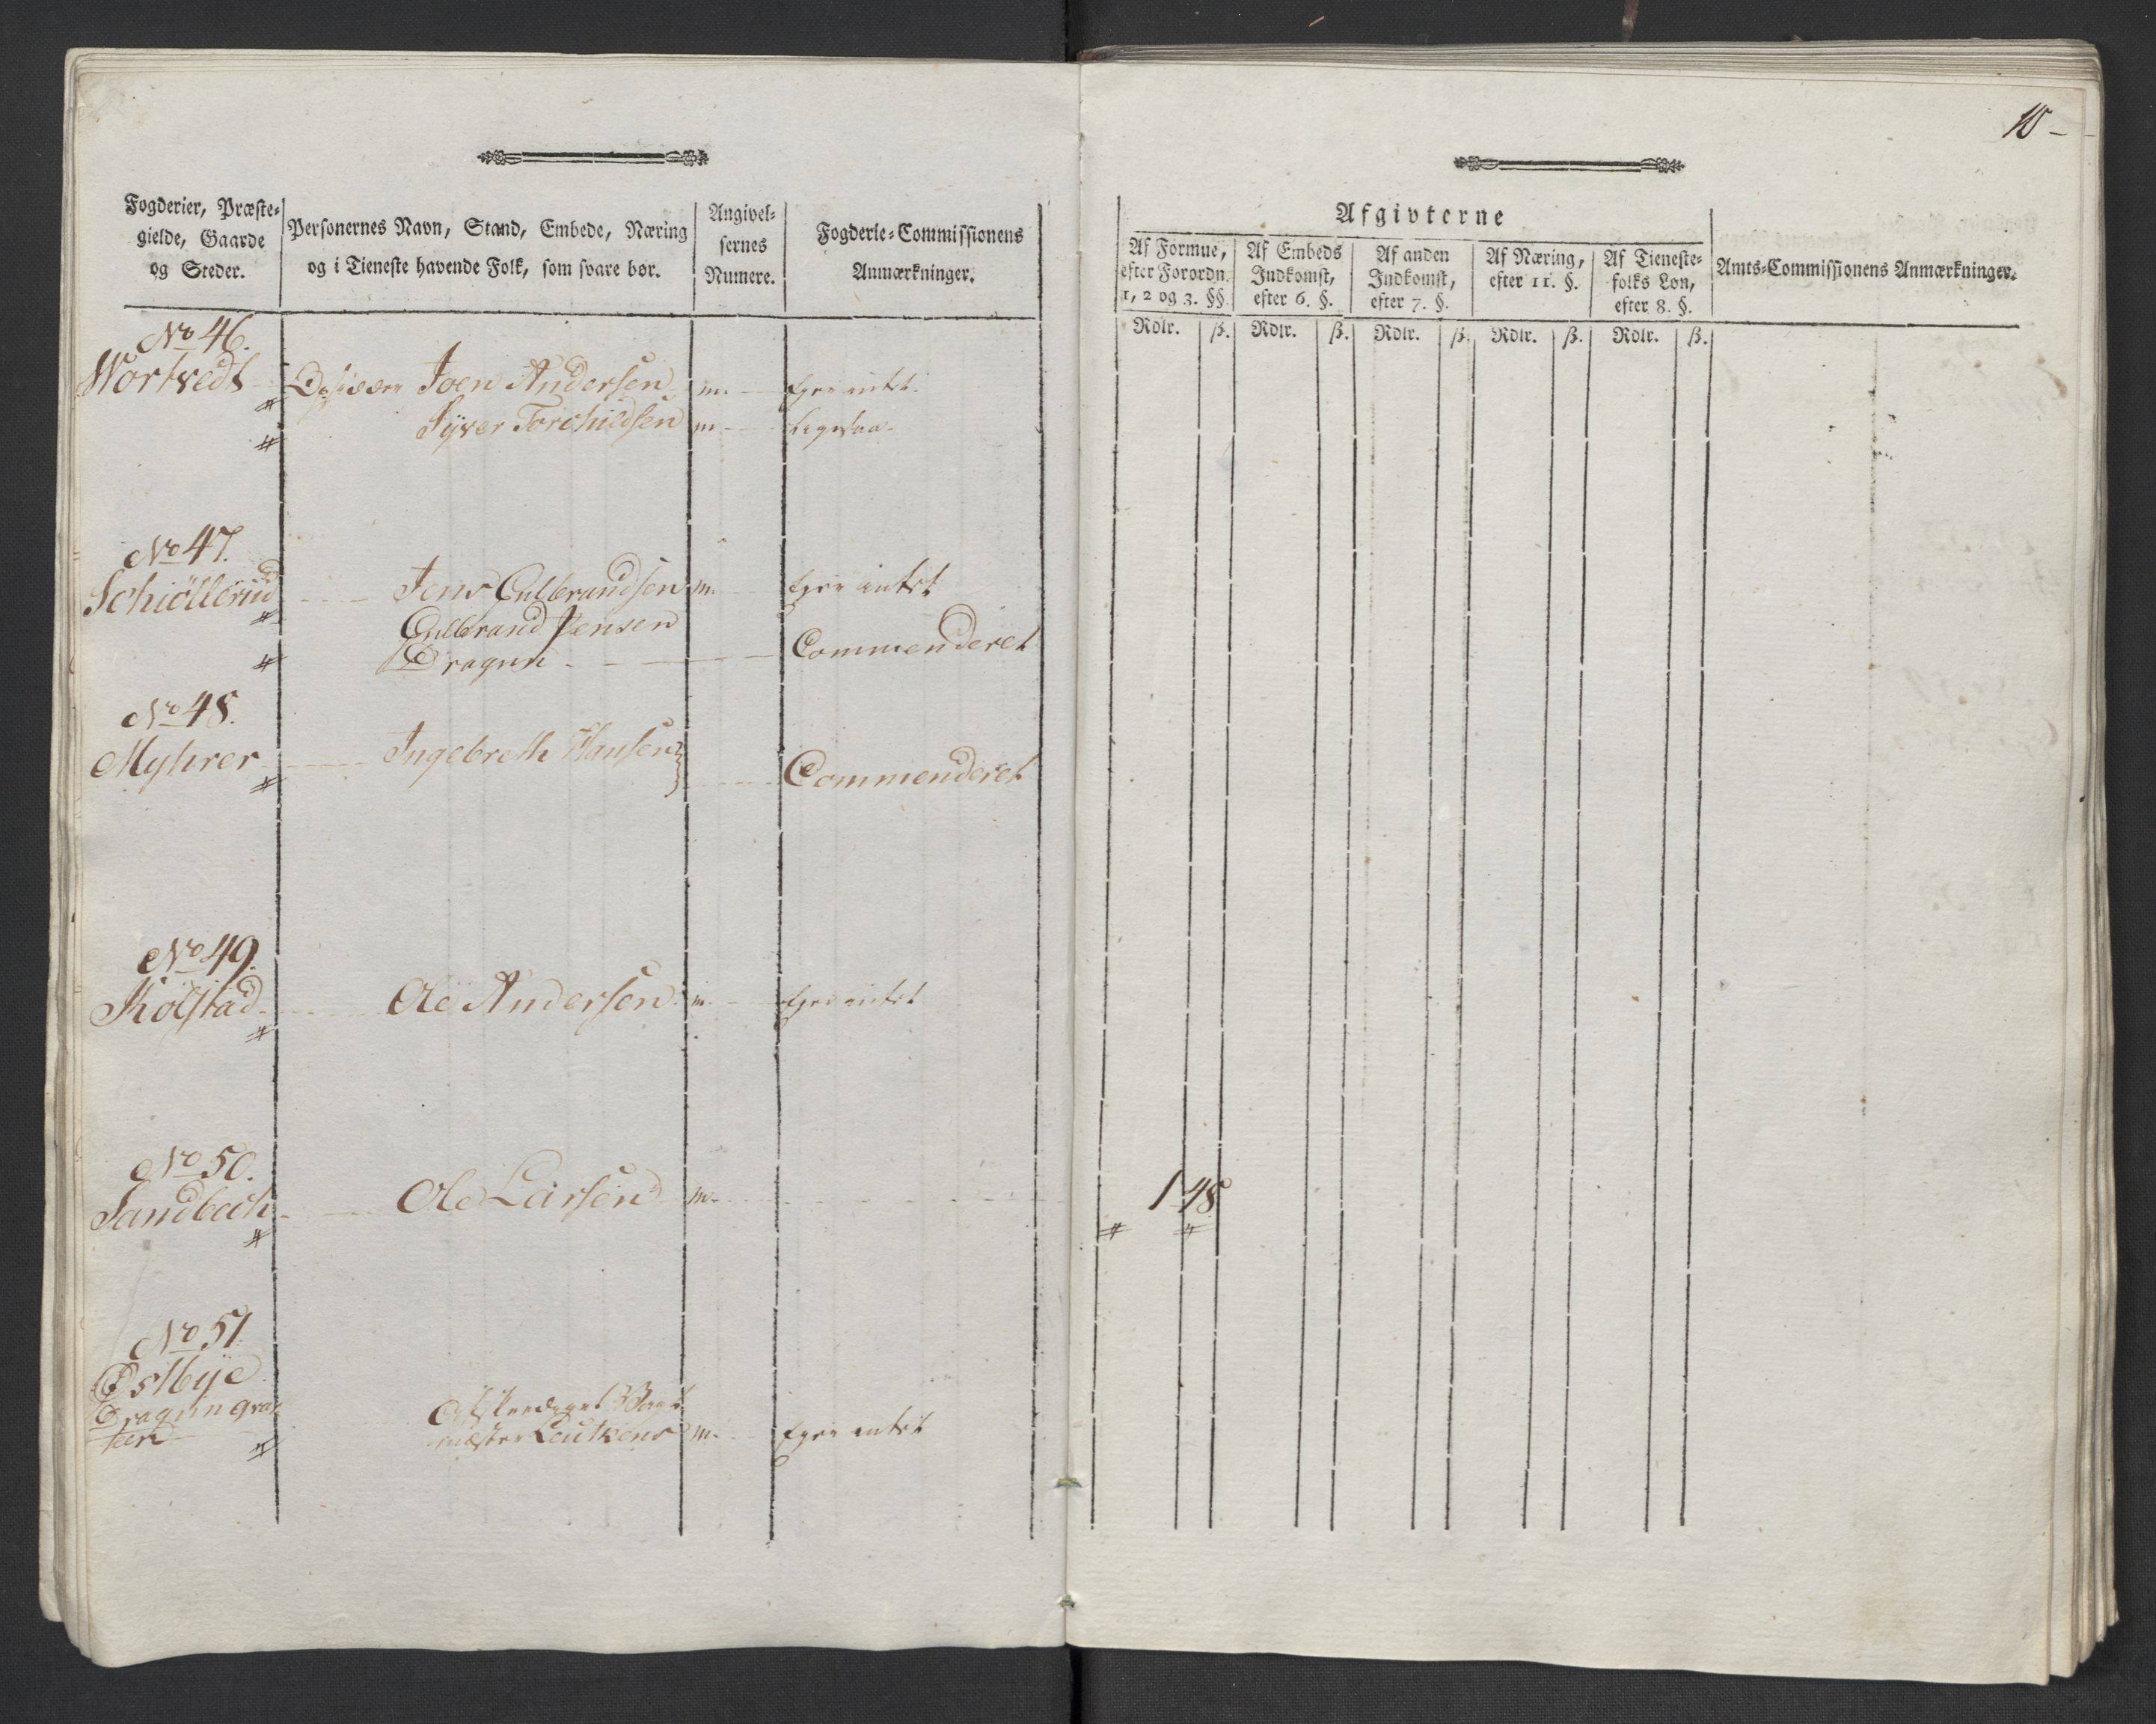 Fogderier, Præste-
gielde, Gaarde
og Steder.
Personernes Navn, Stand, Embede, Næring
og i Tieneste havende Folk, som svare bør.
Angivel-
sernes
Numere.
Fogderie-Commissionens
Anmærkninger.
No 46.
Wortvedt
Joen Andersen m. Ejer intet.
Syver Torchildsen m ligesaa.
No 47.
Schiöllerud Jens Gulbrandsen m. Ejer intet
Gulbrand Jensen
Dragun Commenderet
No 48.
Myhrer Ingebreth Hansen
Commenderet
No 49.
Kölstad Ole Andersen m. Ejer intet
No 50.
Sandbech Ole Larsen m.
No 51
Østbye
Dragun qvar-
teer
Afskeediget Vagt-
mester Leutkens m. Ejer intet
10
Afgivterne
Af Formue,
efter Forordn.
1, 2 og 3. §§.
Af Embeds
Indkomst,
efter 6. §.
Af anden
Indkomst,
efter 7. §.
Af Næring,
efter 11. §.
Af Tieneste-
folks Løn,
efter 8. §.
Amts-Commissionens Anmærkninger.
Rdlr. ß. Rdlr. ß. Rdlr. ß. Rdlr. ß. Rdlr. ß.
1 48